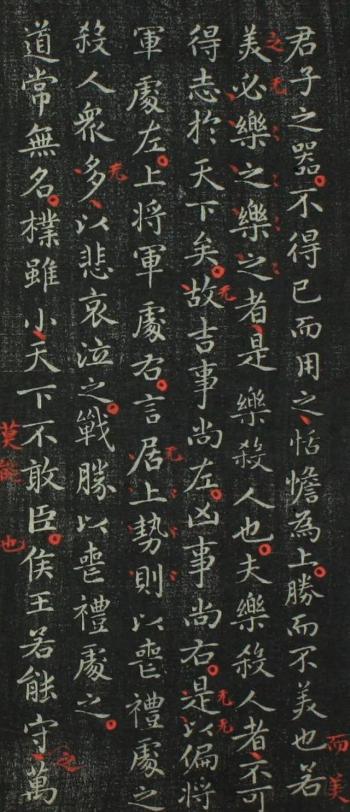 君子之器不得已而用之恬憺為上勝而不美也若
美必樂之樂之者是樂殺人也夫樂殺人者不可
得志於天下矣故吉事尚左凶事尚右是以偏將
軍處左上将軍處右言居上勢則以喪禮處之
殺人衆多以悲哀泣之戰勝以喪禮處之
道常無名樸雖小天下不敢臣侯王若能守萬
而美
之 无
无
无无
无
无
莫能也
之